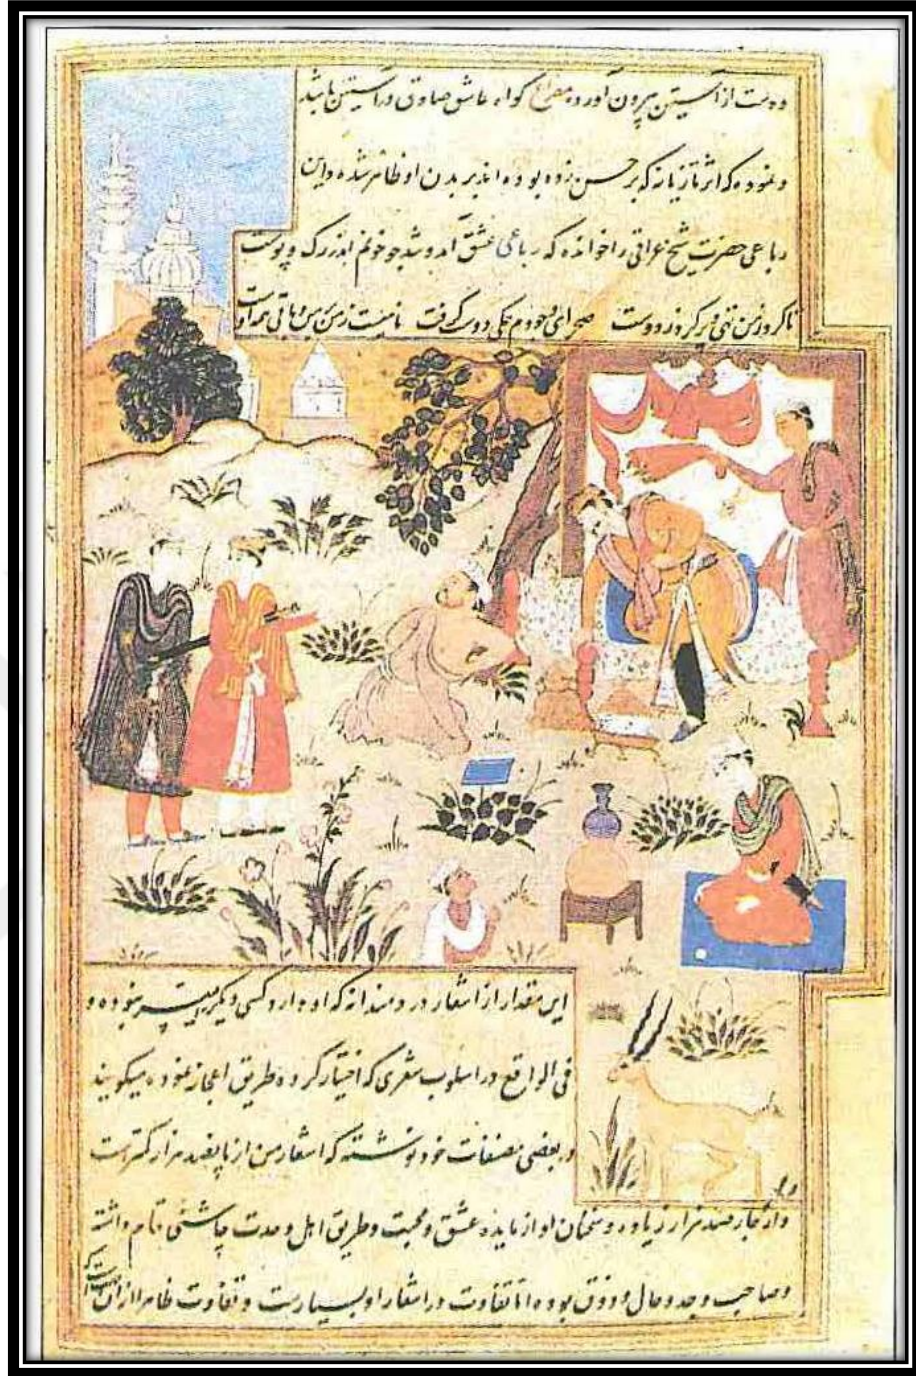 ودست از آستین بیرون آورده مصراع گواه عاشق صادق در آستین باشد
و نموده که اثر تازیانه که بر حسن زده بوده اند بر بدن او ظاهر شده و این
رباعی حضرت شیخ عراقی را خوانده که رباعی عشق آمد و شد چو خونم اندر رگ و پوست
تا کرد ز من تهی و پر کرد ز دوست صحرای وجودم همگی دوست گرفت نامیست ز من بر من و باقی همه اوست
این مقدار از اشعار دردمندانه که او دارد کسی دیگر را میسر نبوده و
فی الواقع در اسلوب شعری که اختیار کرده طریق اعجاز نموده میگویند
در بعضی مصنفات خود نوشته که اشعار من از پانصد هزار کمترست
و از چارصد هزار زیاده و سخنان او از مایده عشق و محبت و طریق اهل وحدت چاشنی تمام داشته
و صاحب وجد و حال و ذوق بوده اما تفاوت در اشعار او بسیارست و تفاوت ظاهرا از آن